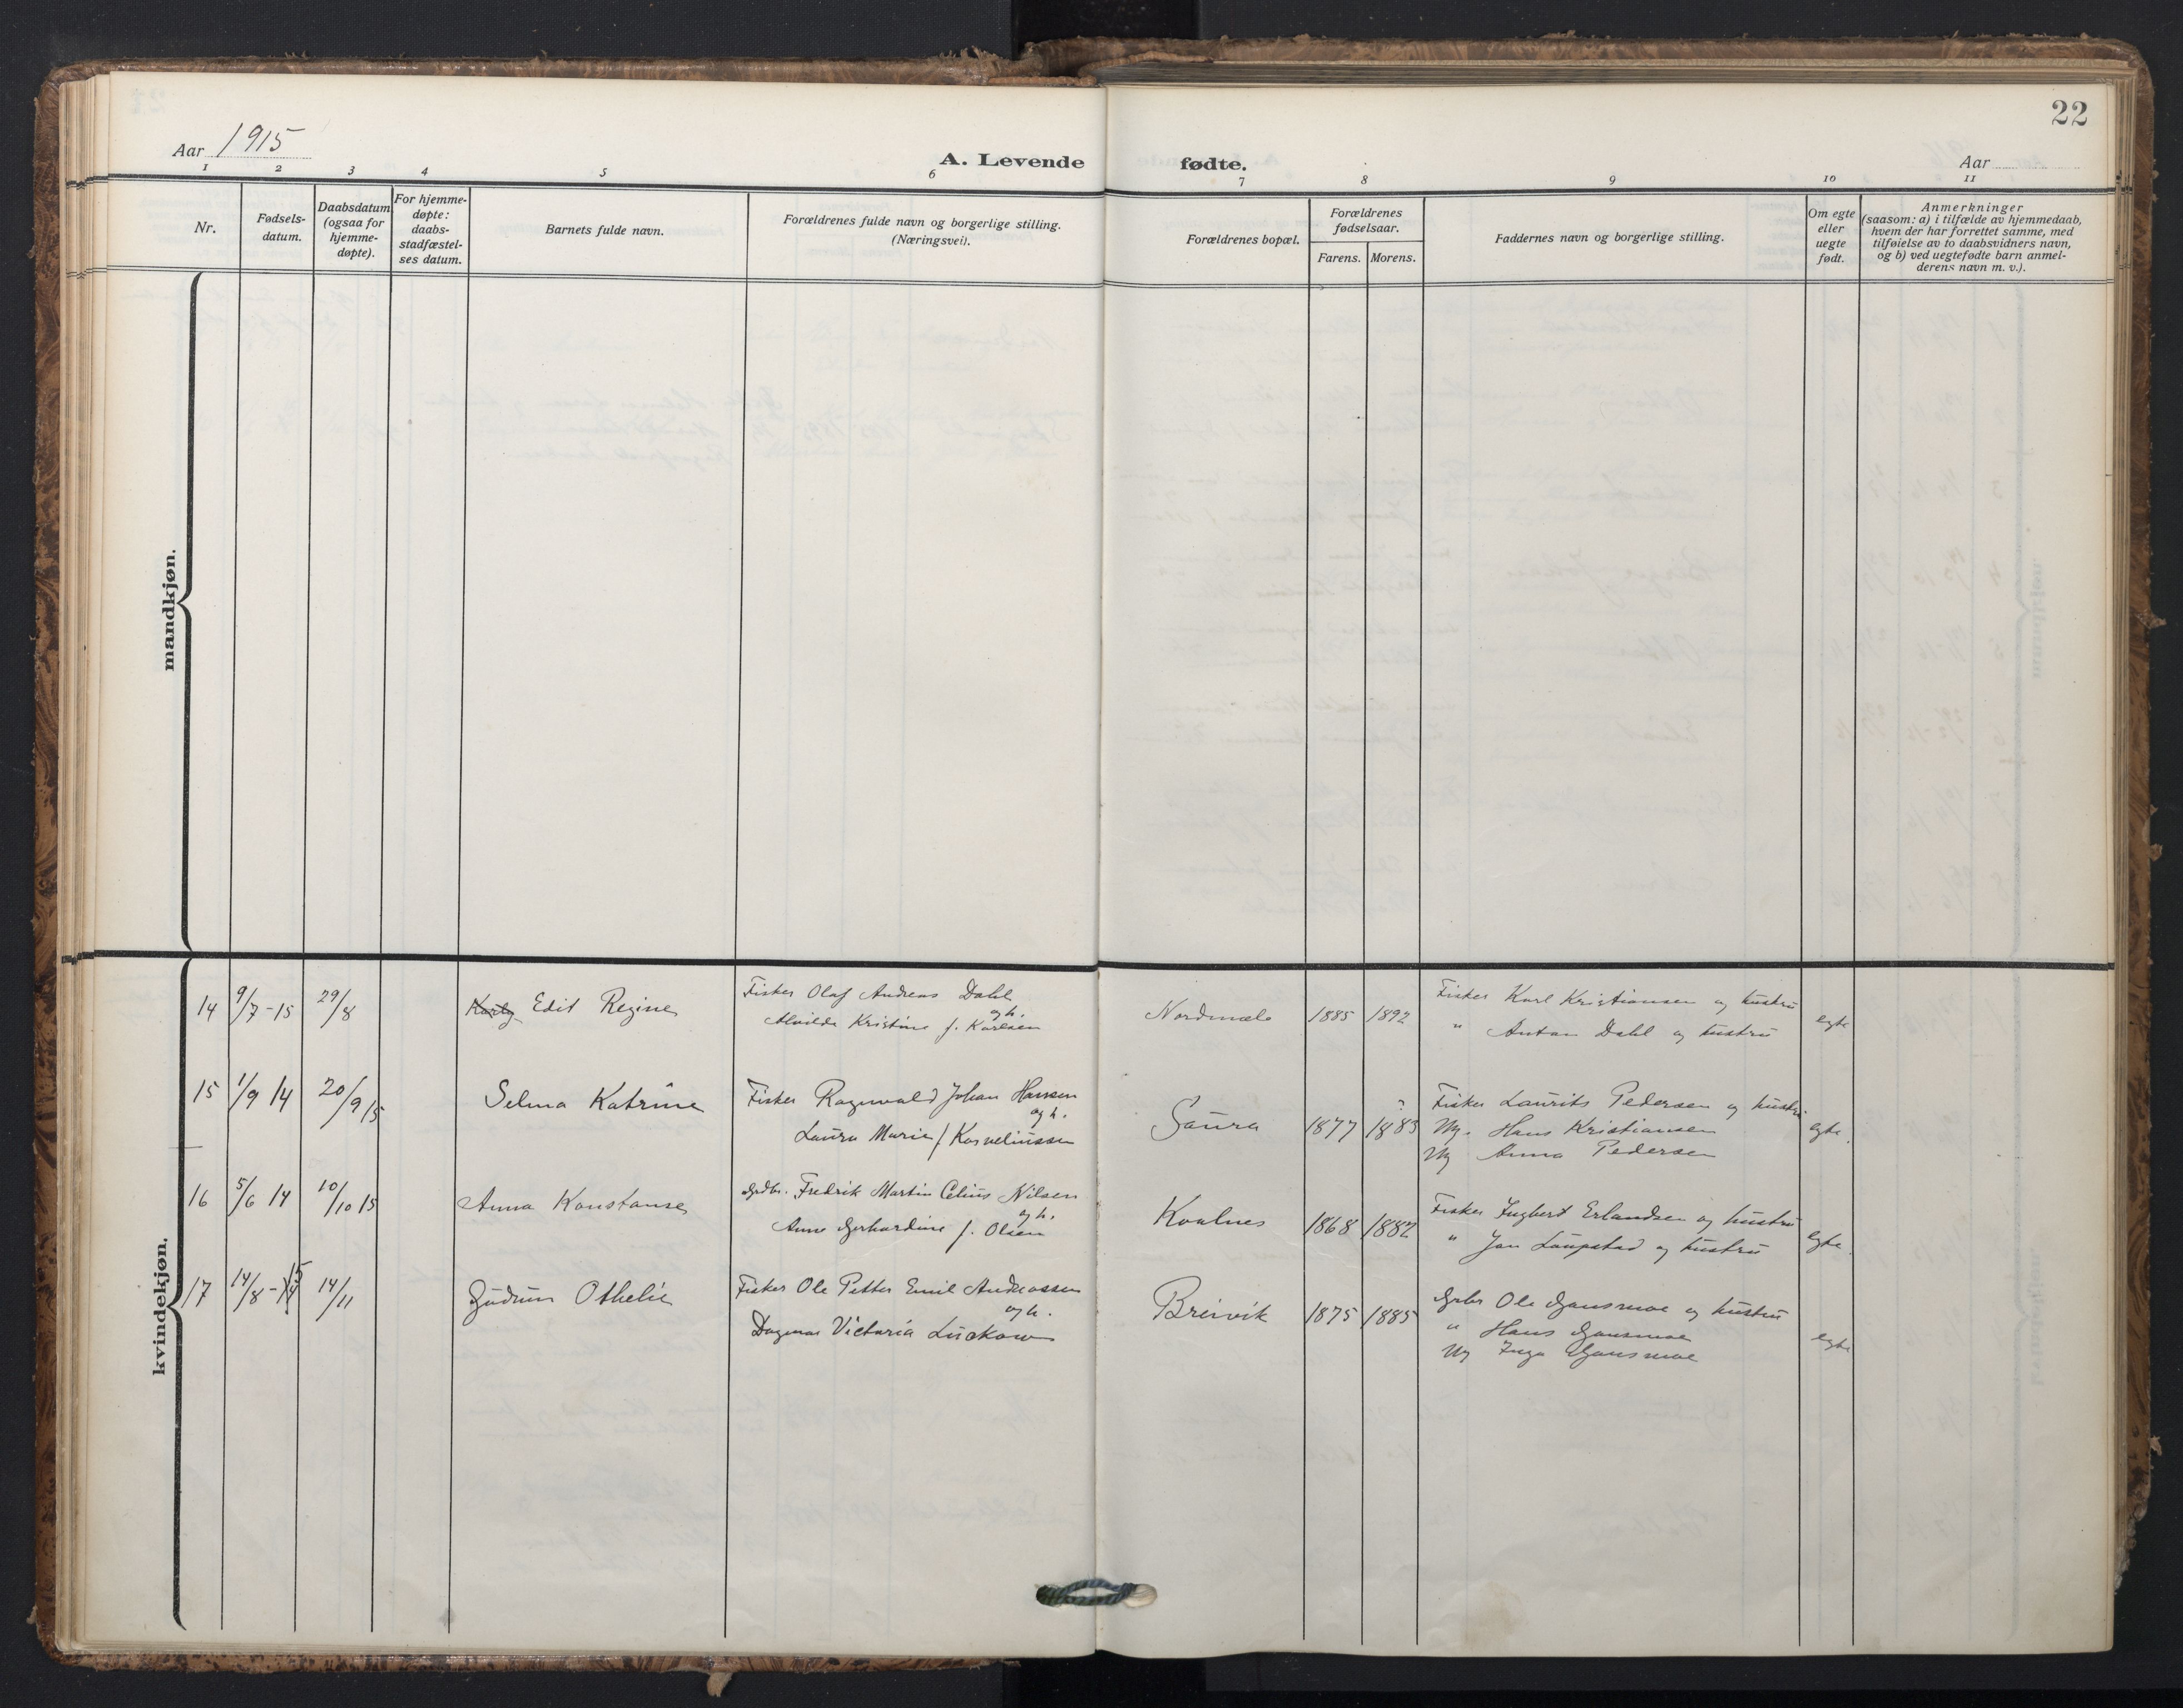 22
Aar 1915
A. Levende fødte.
Aar
1 2 3 4 5 6 7 8 9 10 11
Nr.
Fødsels-
datum.
Daabsdatum
(ogsaa for
hjemme-
døpte).
For hjemme-
døpte:
daabs-
stadfæstel-
ses datum.
Barnets fulde navn.
Forældrenes fulde navn og borgerlige stilling.
(Næringsvei).
Forældrenes bopæl.
Forældrenes
fødselsaar.
Farens. Morens.
Faddernes navn og borgerlige stilling.
Om egte
eller
uegte
født.
Anmerkninger
(saasom: a) i tilfælde av hjemmedaab,
hvem der har forrettet samme, med
tilføielse av to daabsvidners navn,
og b) ved uegtefødte barn anmel-
derens navn m. v.).
mandkjøn.
kvindekjøn.
14 9/7-15 29/8 Edit Regine
Fisker Olaf Andreas Dahl
og h.
Alvilde Kristine f. Karlsen
Nordmæle 1885 1892
Fisker Karl Kristiansen og hustru
" Anton Dahl og hustru
egte
15 1/9 14 20/9 15 Selma Katrine
Fisker Ragnvald Johan Hansen
og h.
Laura Marie f. Korneliussen
Saura 1877 ? 1883
Fisker Laurits Pedersen og hustru
Ug. Hans Kristiansen
Ug Anna Pedersen
egte.
16 5/6 14 10/10 15 Anna Konstanse
Grdbr. Fredrik Martin Celius Nilsen
og h.
Anne Gerhardine f. Olsen
Kvalnes 1868 1882
Fisker Ingbert Erlandsen og hustru
" Jan Laupstad og hustru
egte.
17 14/8-15 14/11 Gudrun Othelie
Fisker Ole Petter Emil Andreassen
og h.
Dagmar Victoria Luckow
Breivik 1875 1885
Grbr Ole Gausmoe og hustru
" Hans Gausmoe
Ug Inga Gausmoe
egte